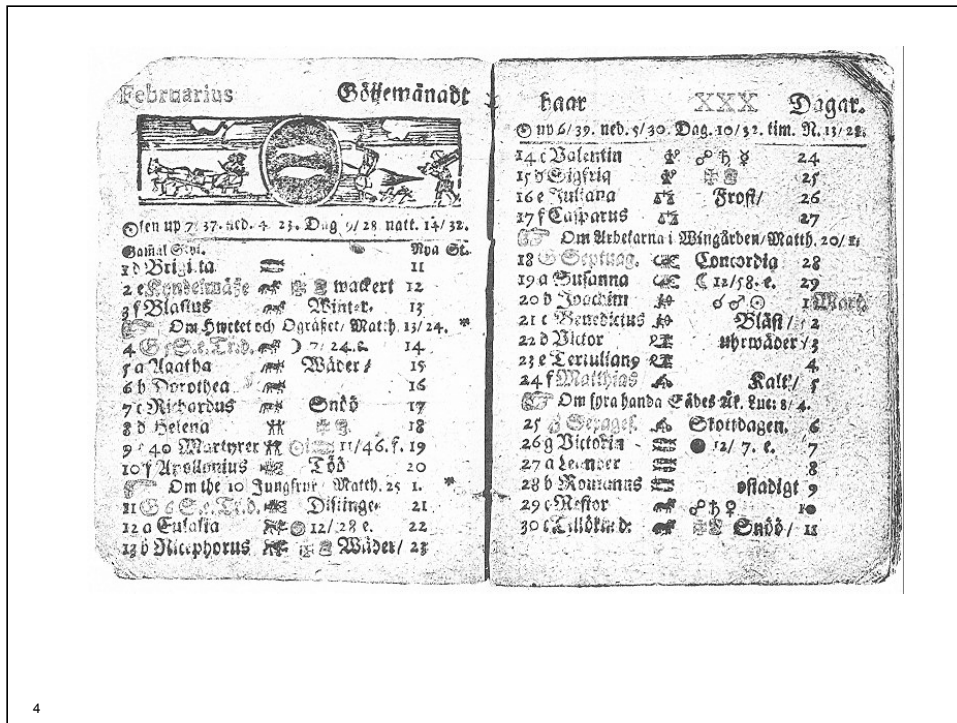 Februarius Göijemånadt
Solen up 7/37. ned. 4 23. Dag 9/28 natt. 14/32.
Gamal Styl. Nya St.
1 d Brigita 11
2 e Kyndelmässe wackert 12
3 f Blasius Winter. 13
Om Hwetet och Ogräset/ Matth. 13/24. *
4 G 7/24. 14
5 a Agatha Wäder/ 15
6 b Dorothea 16
7 c Richardus Snöö 17
8 d Helena 18
9 e 40 Martyrer 11/46.f. 19
10 f Apollonius Töö 20
Om the 10 Jungfrur Matth. 25 1. *
11 G Distinge 21
12 a Eulalia 12/28 e. 22
13 b Nicephorus Wäder/ 23
haar XXX Dagar.
☉ up 6/39. ned. 5/30. Dag. 10/32. tim. N. 13/28.
14 c Valentin ☍ ♄ ☿ 24
15 d Sigfrid 25
16 e Juliana Frost/ 26
17 f Casparus 27
Om Arbetarna i Wingården/Matth. 20/1.
18 G Septuag. Concordia 28
19 a Susanna ☾ 12/58. e. 29
20 b Joachim ☌ ♂ ☉ 1 Mart.
21 c Benedictus Blåst/ 2
22 d Victor uhrwäder/ 3
23 e Tertuliang 4
24 f Matthias Kalt/ 5
Om fyra handa Sädes Åk. Luc: 8/4.
25 G Sexages. Skottdagen. 6
26 g Victoria ● 12/ 7. e. 7
27 a Leander 8
28 b Romanus ostadigt 9
29 c Nestor ☍ ♄ ♀ 10
30 c Tillökind: Snöö/ 11
4